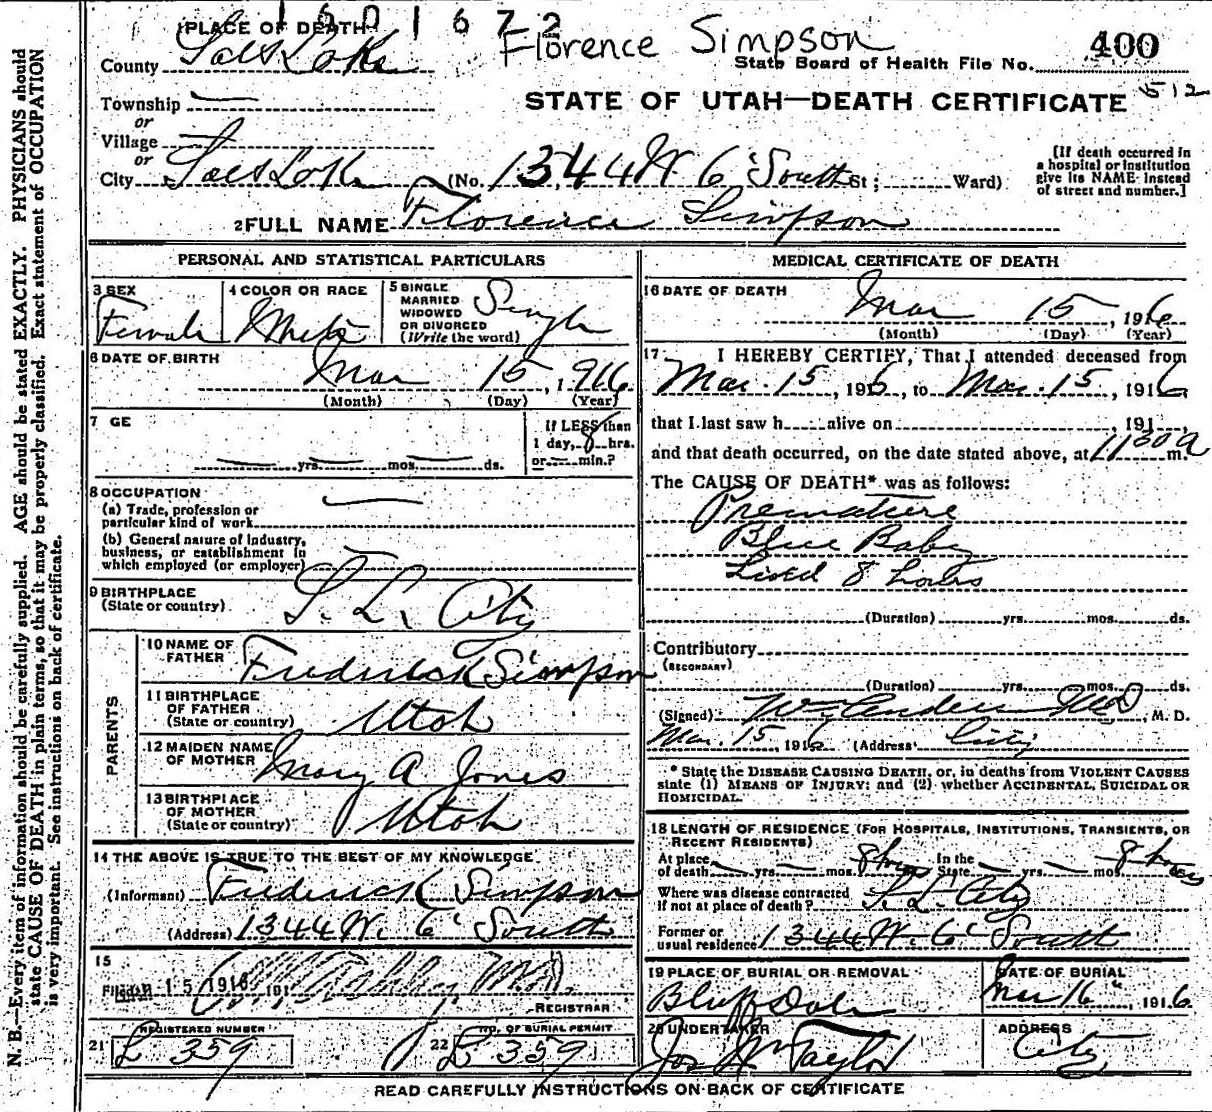 1601672
PLACE OF DEATH Florence Simpson 400
County Salt Lake State Board of Health File No.
Township — STATE OF UTAH—DEATH CERTIFICATE 512
or
Village —
or
City Salt Lake (No. 1344 W 6' South St; Ward)
[If death occurred in
a hospital or institution
give its NAME instead
of street and number.]
2 FULL NAME Florence Simpson
PERSONAL AND STATISTICAL PARTICULARS
3 SEX Female
4 COLOR OR RACE White
5 SINGLE
MARRIED
WIDOWED
OR DIVORCED
(Write the word) Single
6 DATE OF BIRTH Mar 15, 1916
(Month) (Day) (Year)
7 GE
— yrs. — mos. — ds.
If LESS than
1 day, 8 hrs.
or — min.?
8 OCCUPATION —
(a) Trade, profession or
particular kind of work
(b) General nature of industry,
business, or establishment in
which employed (or employer) —
9 BIRTHPLACE
(State or country) S. L. City
PARENTS
10 NAME OF
FATHER Frederick Simpson
11 BIRTHPLACE
OF FATHER
(State or country) Utah
12 MAIDEN NAME
OF MOTHER Mary A Jones
13 BIRTHPLACE
OF MOTHER
(State or country) Utah
14 THE ABOVE IS TRUE TO THE BEST OF MY KNOWLEDGE
(Informant) Frederick Simpson
(Address) 1344 W. 6' South
15
Filed MAR 15 1916, 191 M.D.
REGISTRAR
21 REGISTERED NUMBER 359
22 NO. OF BURIAL PERMIT 359
MEDICAL CERTIFICATE OF DEATH
16 DATE OF DEATH Mar 15, 1916
(Month) (Day) (Year)
17 I HEREBY CERTIFY, That I attended deceased from
Mar. 15, 1916, to Mar. 15, 1916,
that I last saw h alive on , 191 ,
and that death occurred, on the date stated above, at 11 30 a m.
The CAUSE OF DEATH* was as follows:
Premature
Blue Baby
Lived 8 hours
(Duration) yrs. mos. ds.
Contributory
(SECONDARY)
(Duration) yrs. mos. ds.
(Signed) M. D.
Mar. 15, 1916 (Address) City
* State the DISEASE CAUSING DEATH, or, in deaths from VIOLENT CAUSES
state (1) MEANS OF INJURY; and (2) whether ACCIDENTAL, SUICIDAL OR
HOMICIDAL.
18 LENGTH OF RESIDENCE (FOR HOSPITALS, INSTITUTIONS, TRANSIENTS, OR
RECENT RESIDENTS)
At place
of death — yrs. — mos. 8 hours In the
State — yrs. — mos. 8 hours
Where was disease contracted
if not at place of death? S. L. City
Former or
usual residence 1344 W. 6' South
19 PLACE OF BURIAL OR REMOVAL
Bluff Dale
DATE OF BURIAL
Mar 16", 1916
20 UNDERTAKER
Jos Wm Taylor
ADDRESS
City
READ CAREFULLY INSTRUCTIONS ON BACK OF CERTIFICATE
N. B.—Every item of information should be carefully supplied. AGE should be stated EXACTLY. PHYSICIANS should
state CAUSE OF DEATH in plain terms, so that it may be properly classified. Exact statement of OCCUPATION
is very important. See instructions on back of certificate.